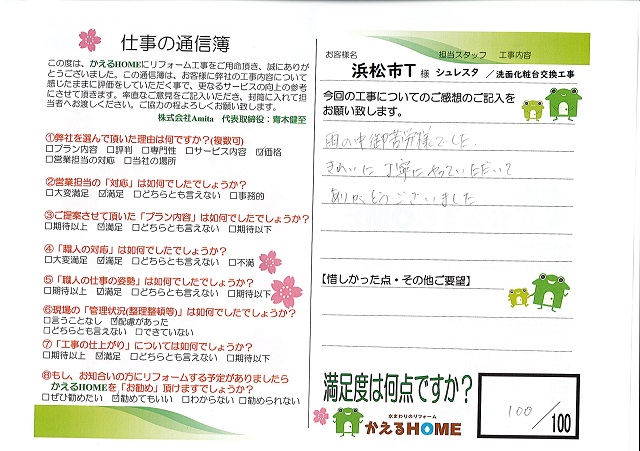 仕事の通信簿
この度は、かえるHOMEにリフォーム工事をご用命頂き、誠にありが
とうございました。この通信簿は、お客様に弊社の工事内容について
感じたままに評価をしていただく事で、更なるサービスの向上の参考
にさせて頂きます。率直なご意見をご記入いただき、封筒に入れて担
当者へお渡しください。ご協力の程よろしくお願い致します。
株式会社Amita 代表取締役:青木健至
①弊社を選んで頂いた理由は何ですか?(複数可)
□プラン内容 □評判 □専門性 □サービス内容 ☑価格
□営業担当の対応 □当社の場所
②営業担当の「対応」は如何でしたでしょうか?
□大変満足 ☑満足 □どちらとも言えない □事務的
③ご提案させて頂いた「プラン内容」は如何でしたでしょうか?
□期待以上 ☑満足 □どちらとも言えない □期待以下
④「職人の対応」は如何でしたでしょうか?
□大変満足 ☑満足 □どちらとも言えない □不満
⑤「職人の仕事の姿勢」は如何でしたでしょうか?
□期待以上 ☑満足 □どちらとも言えない □期待以下
⑥現場の「管理状況(整理整頓等)」は如何でしたでしょうか?
□言うことなし ☑配慮があった
□どちらとも言えない □できていない
⑦「工事の仕上がり」については如何でしょうか?
□期待以上 ☑満足 □どちらとも言えない □期待以下
⑧もし、お知合いの方にリフォームする予定がありましたら
かえるHOMEを「お勧め」頂けますでしょうか?
□ぜひ勧めたい ☑勧めてもいい □わからない □勧められない
お客様名 担当スタッフ 工事内容
浜松市T 様 シュレスタ /洗面化粧台交換工事
今回の工事についてのご感想のご記入を
お願い致します。
雨の中御苦労様でした。
きれいに丁寧にやっていただいて
ありがとうございました
【惜しかった点・その他ご要望】
満足度は何点ですか?
100/100
水まわりのリフォーム
かえるHOME